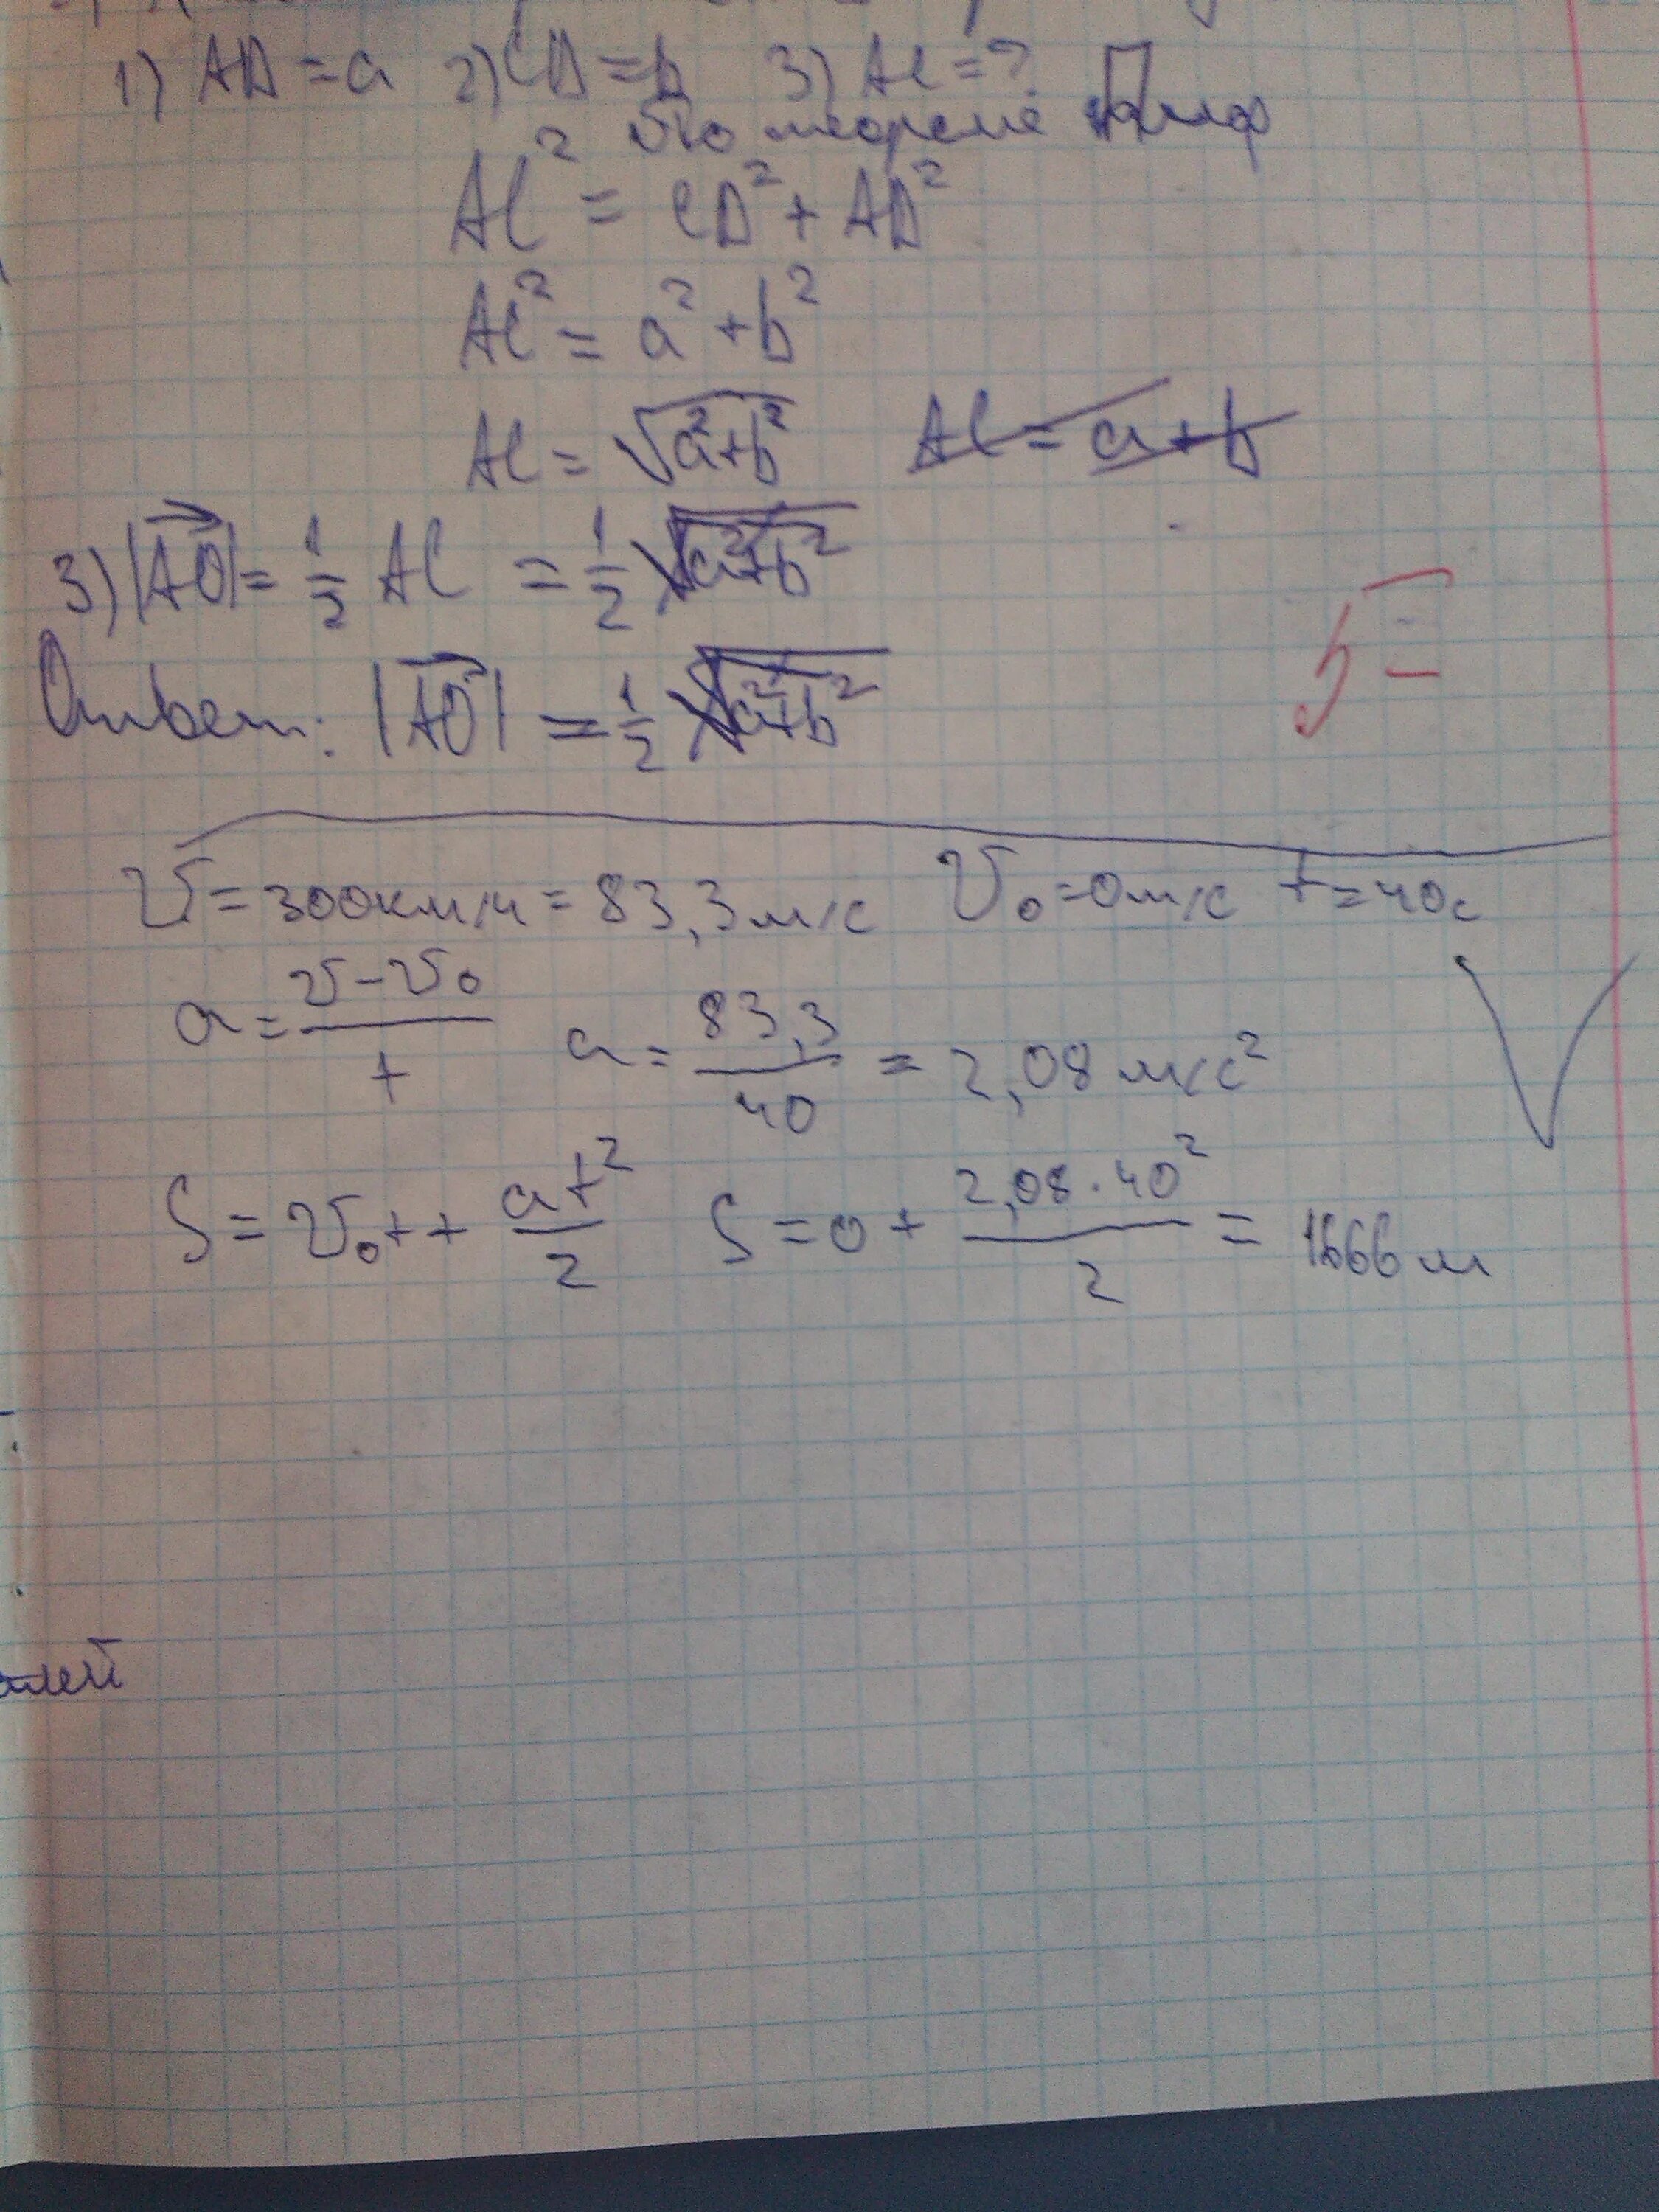 1) AD = a 2) CD = b 3) AC = ?
По теореме Пиф
AC² = CD² + AD²
AC² = a² + b²
AC = √a²+b² AC = a + b
3) |AO| = 1/2 AC = 1/2 √a²+b²
Ответ: |AO| = 1/2 √a²+b²
5=
V = 300км/ч = 83,3 м/с V₀ = 0м/с t = 40с
a = V-V₀/t a = 83,3/40 = 2,08 м/с²
S = V₀t + at²/2 S = 0 + 2,08·40²/2 = 1666 м
алей